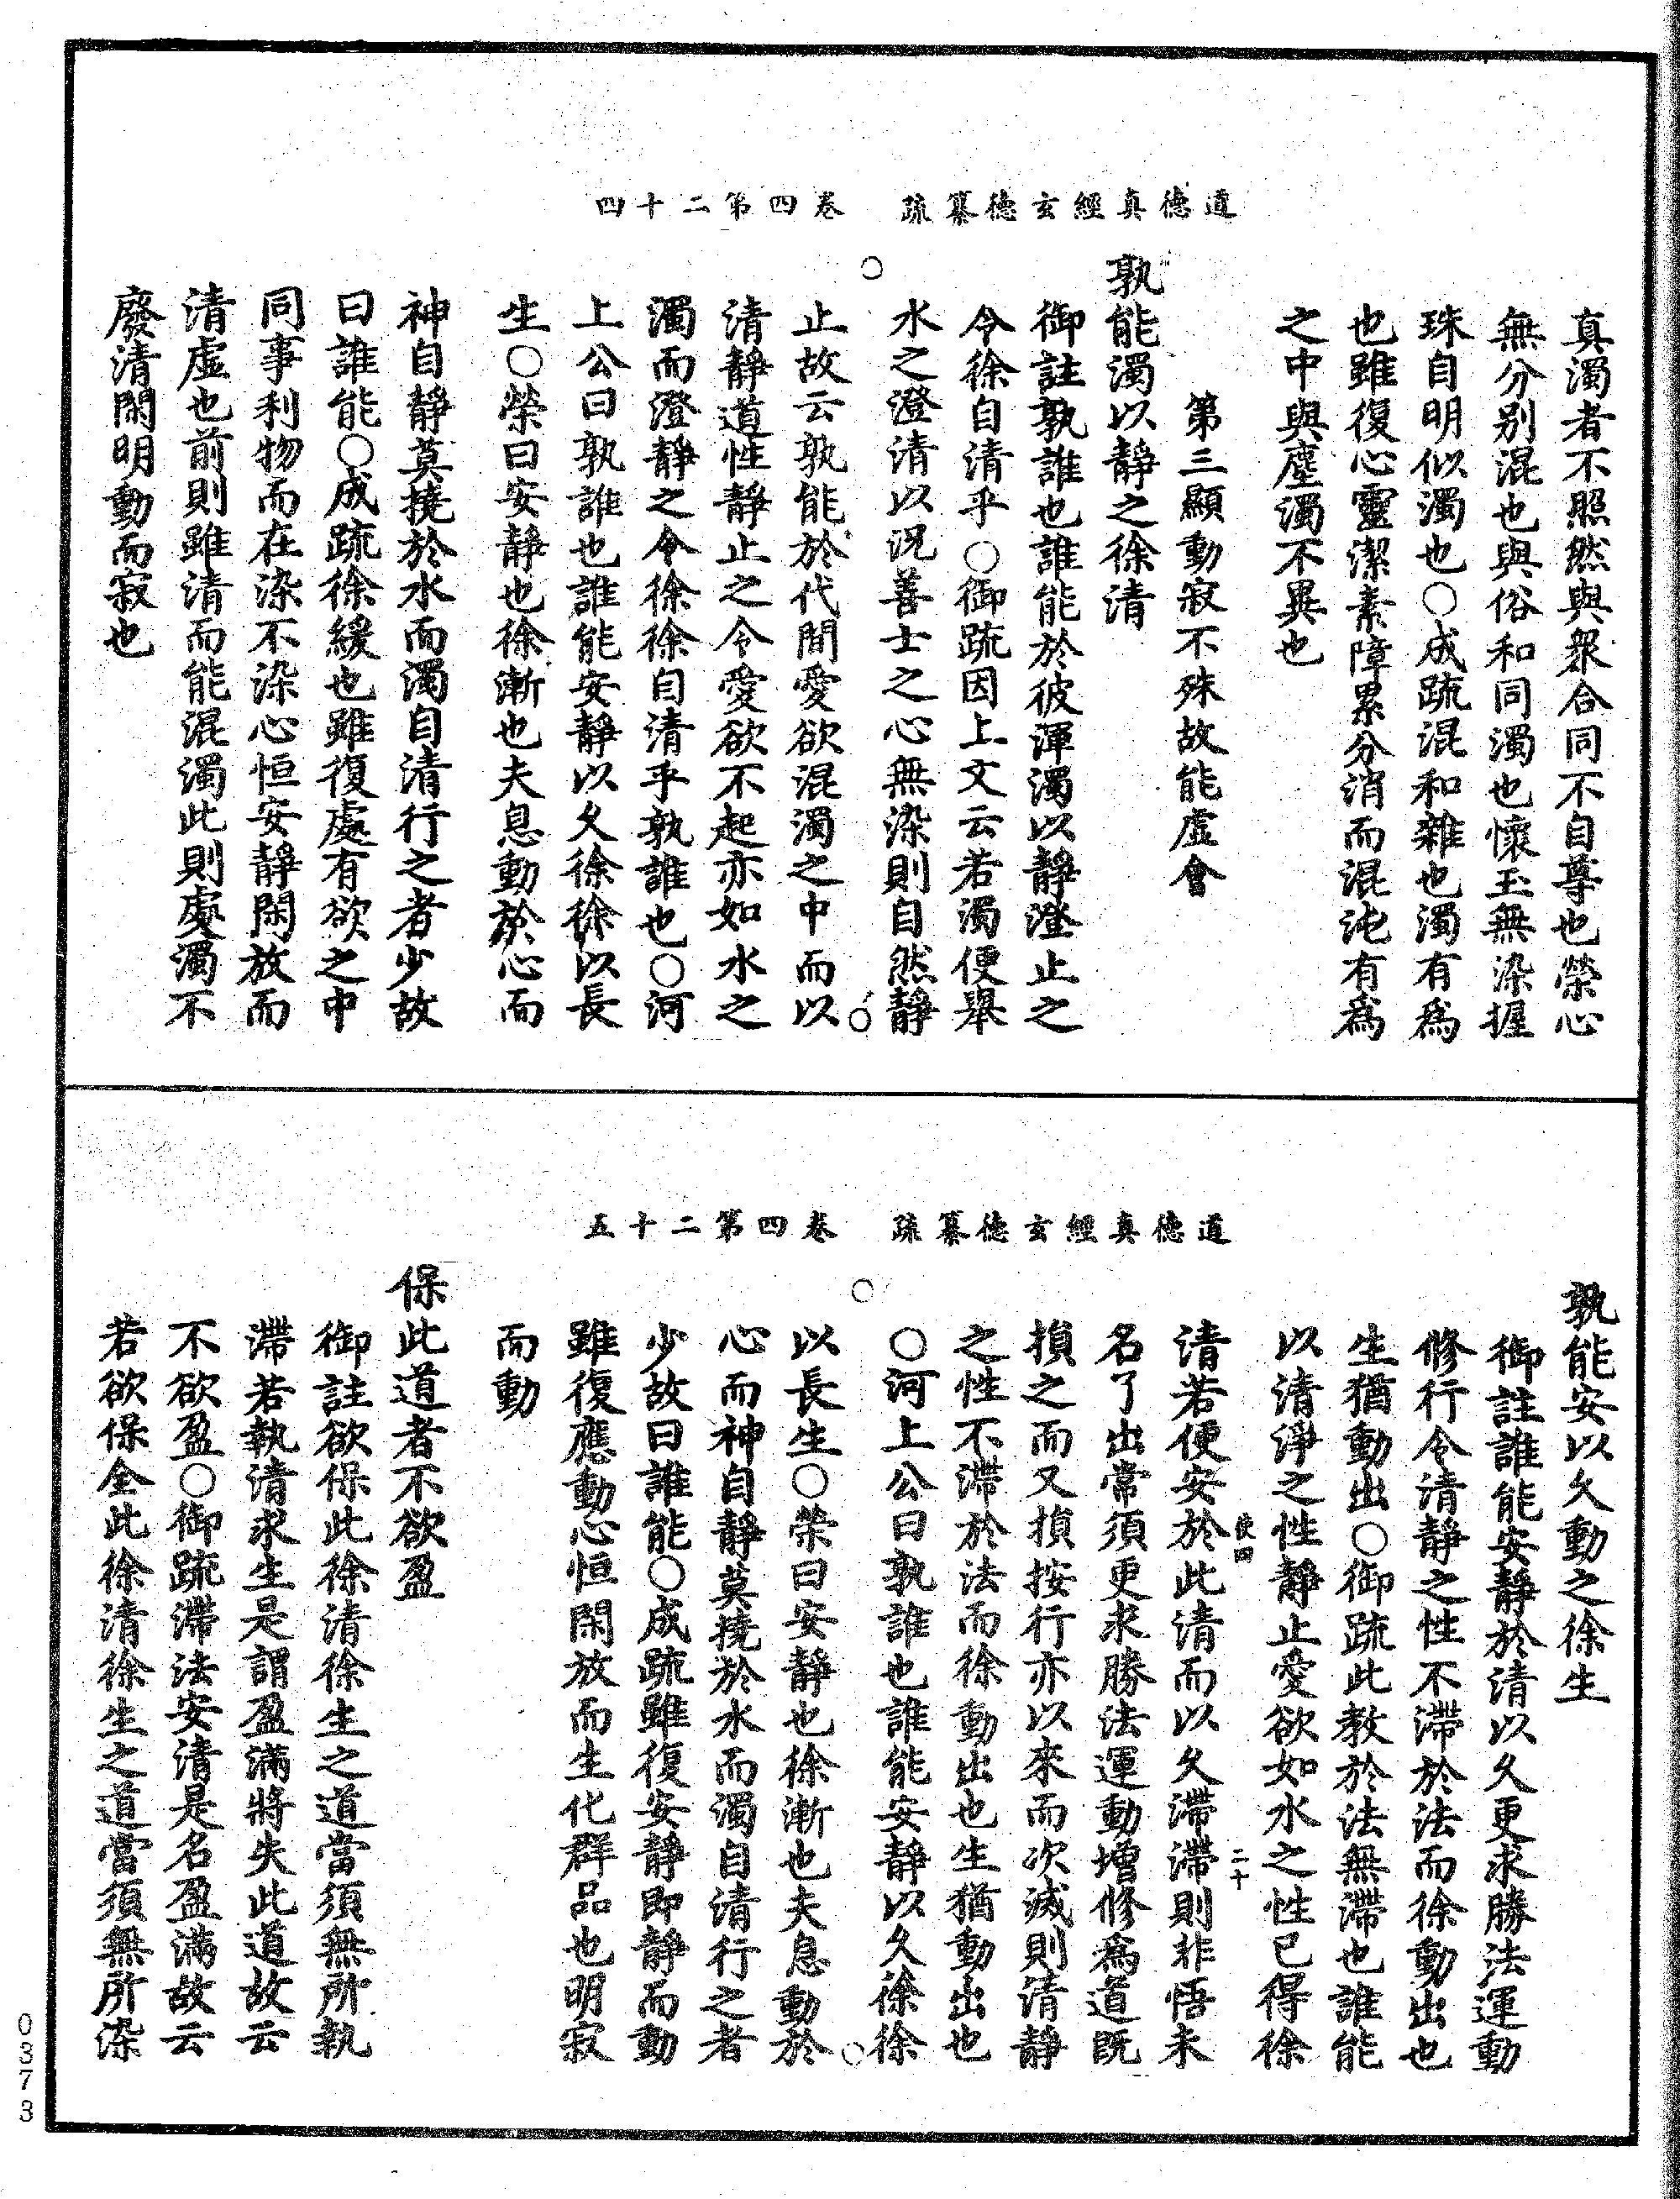 道德真經玄德纂疏　卷四第二十四
真濁者不照然與衆合同不自尊也榮心
無分別混也與俗和同濁也懷玉無染握
珠自明似濁也○成疏混和雜也濁有為
也雖復心靈潔素障累分消而混沌有為
之中與塵濁不異也
第三顯動寂不殊故能虛會
孰能濁以靜之徐清
御註孰誰也誰能於彼渾濁以靜澄止之
令徐自清乎○御疏因上文云若濁便舉
水之澄清以況善士之心無染則自然靜
止故云孰能於代間愛欲混濁之中而以
清靜道性靜止之令愛欲不起亦如水之
濁而澄靜之令徐徐自清乎孰誰也○河
上公曰孰誰也誰能安靜以久徐徐以長
生○榮曰安靜也徐漸也夫息動於心而
神自靜莫撓於水而濁自清行之者少故
曰誰能○成疏徐緩也雖復處有欲之中
同事利物而在染不染心恒安靜閑放而
清虛也前則雖清而能混濁此則處濁不
廢清閑明動而寂也
道德真經玄德纂疏　卷四第二十五
孰能安以久動之徐生
御註誰能安靜於清以久更求勝法運動
修行令清靜之性不滯於法而徐動出也
生猶動出○御疏此教於法無滯也誰能
以清淨之性靜止愛欲如水之性已得徐
使四　二十
清若便安於此清而以久滯滯則非悟未
名了出常須更求勝法運動增修為道既
損之而又損按行亦以來而次滅則清靜
之性不滯於法而徐動出也生猶動出也
○河上公曰孰誰也誰能安靜以久徐徐
以長生○榮曰安靜也徐漸也夫息動於
心而神自靜莫撓於水而濁自清行之者
少故曰誰能○成疏雖復安靜即靜而動
雖復應動心恒閑放而生化群品也明寂
而動
保此道者不欲盈
御註欲保此徐清徐生之道當須無所執
滯若執清求生是謂盈滿將失此道故云
不欲盈○御疏滯法安清是名盈滿故云
若欲保全此徐清徐生之道當須無所染
0373